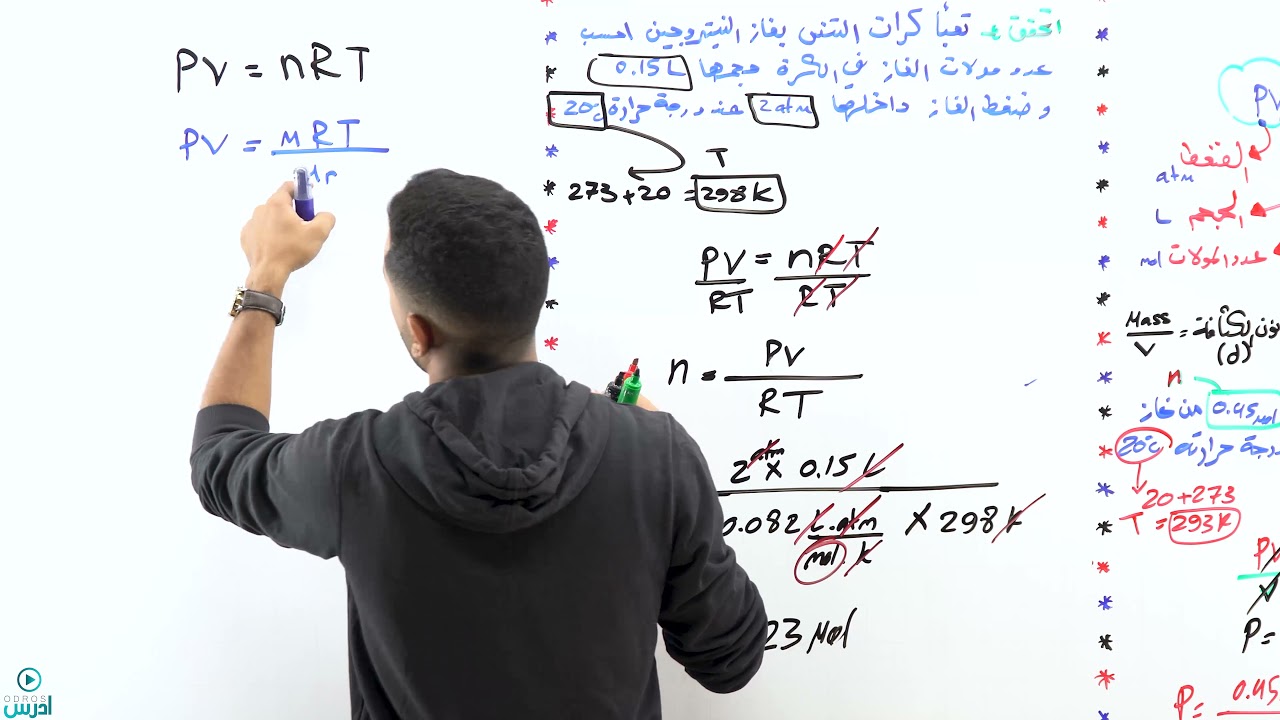 PV = nRT
PV = MRT
Mr
اتحقق تعبأ كرات التنس بغاز النيتروجين احسب
عدد مولات الغاز في الكرة حجمها 0.15 L
و ضغط الغاز داخلها 2 atm عند درجة حرارة 20°C
T
273 + 20 = 298 K
PV = nRT
RT RT
n = PV
RT
2 atm × 0.15 L
0.082 L.atm × 298 K
mol . K
23 Mol
PV
الضغط
atm
الحجم L
عدد المولات mol
Mass = الكثافة
V (d)
n
0.45 mol من غاز
درجة حرارته 20°C
20 + 273
T = 293 K
PV
V
P =
P = 0.45
ODROS
ادرس